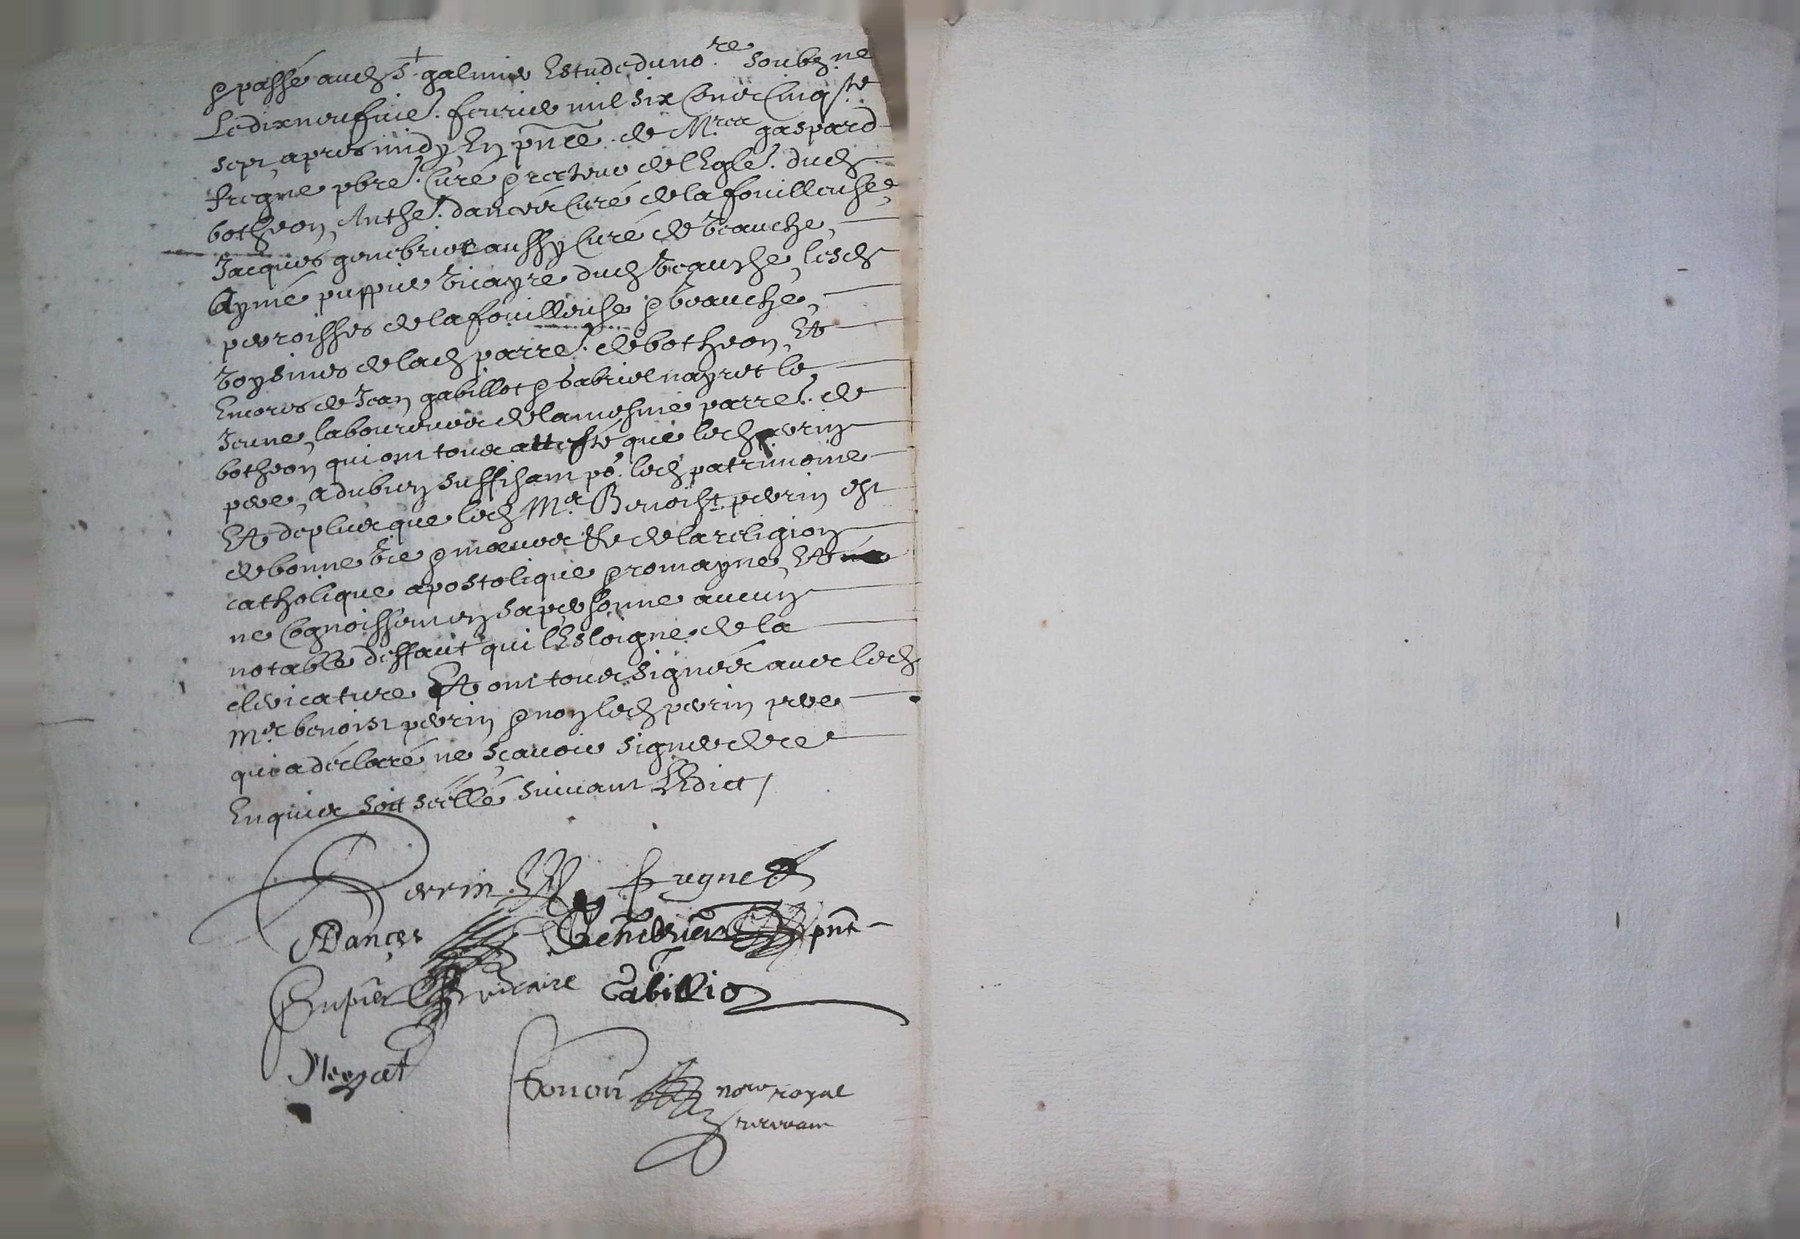 & passé aud St galmier Estude du no.re soubzne
Le dixneufvie. febvrier mil six Centz Cinqte
sept, apres midy, En pñce. de M.re gaspard
fregne pbre. Curé & recteur de l'Egle. dud
botheon, Anthe. dancer Curé de la fouillouse,
Jacques genebrier aussy Curé de Veauche,
Aymé puppier Vicayre dud Veauche, lesd
perroisses de la fouillouse & Veauche,
Voysines de lad parre. de botheon, Et
Encores de Jean gabillot & gabriel nayret le
Jeune, laboureurs de la mesme parre. de
botheon qui ont tous attesté que led perrin
pere, a du bien suffisant po. led patrimoine
Et de plus que led Mre Benoist perrin est
de bonne vie & moeurs & de la religion
catholique apostolique & romayne, Et
ne Cognoissent en sa personne aucun
notable deffaut qui l'Esloigne de la
clericature Et ont tous signés avec led
Mre benoist perrin & non led perrin pere
qui a déclaré ne sçavoir signer de ce
Enquis soit scellé suivant l'Edict /
Perrin fregne
Dancer Genebrier pñt
Pupier vicaire Gabillio
Neyret
no.re royal